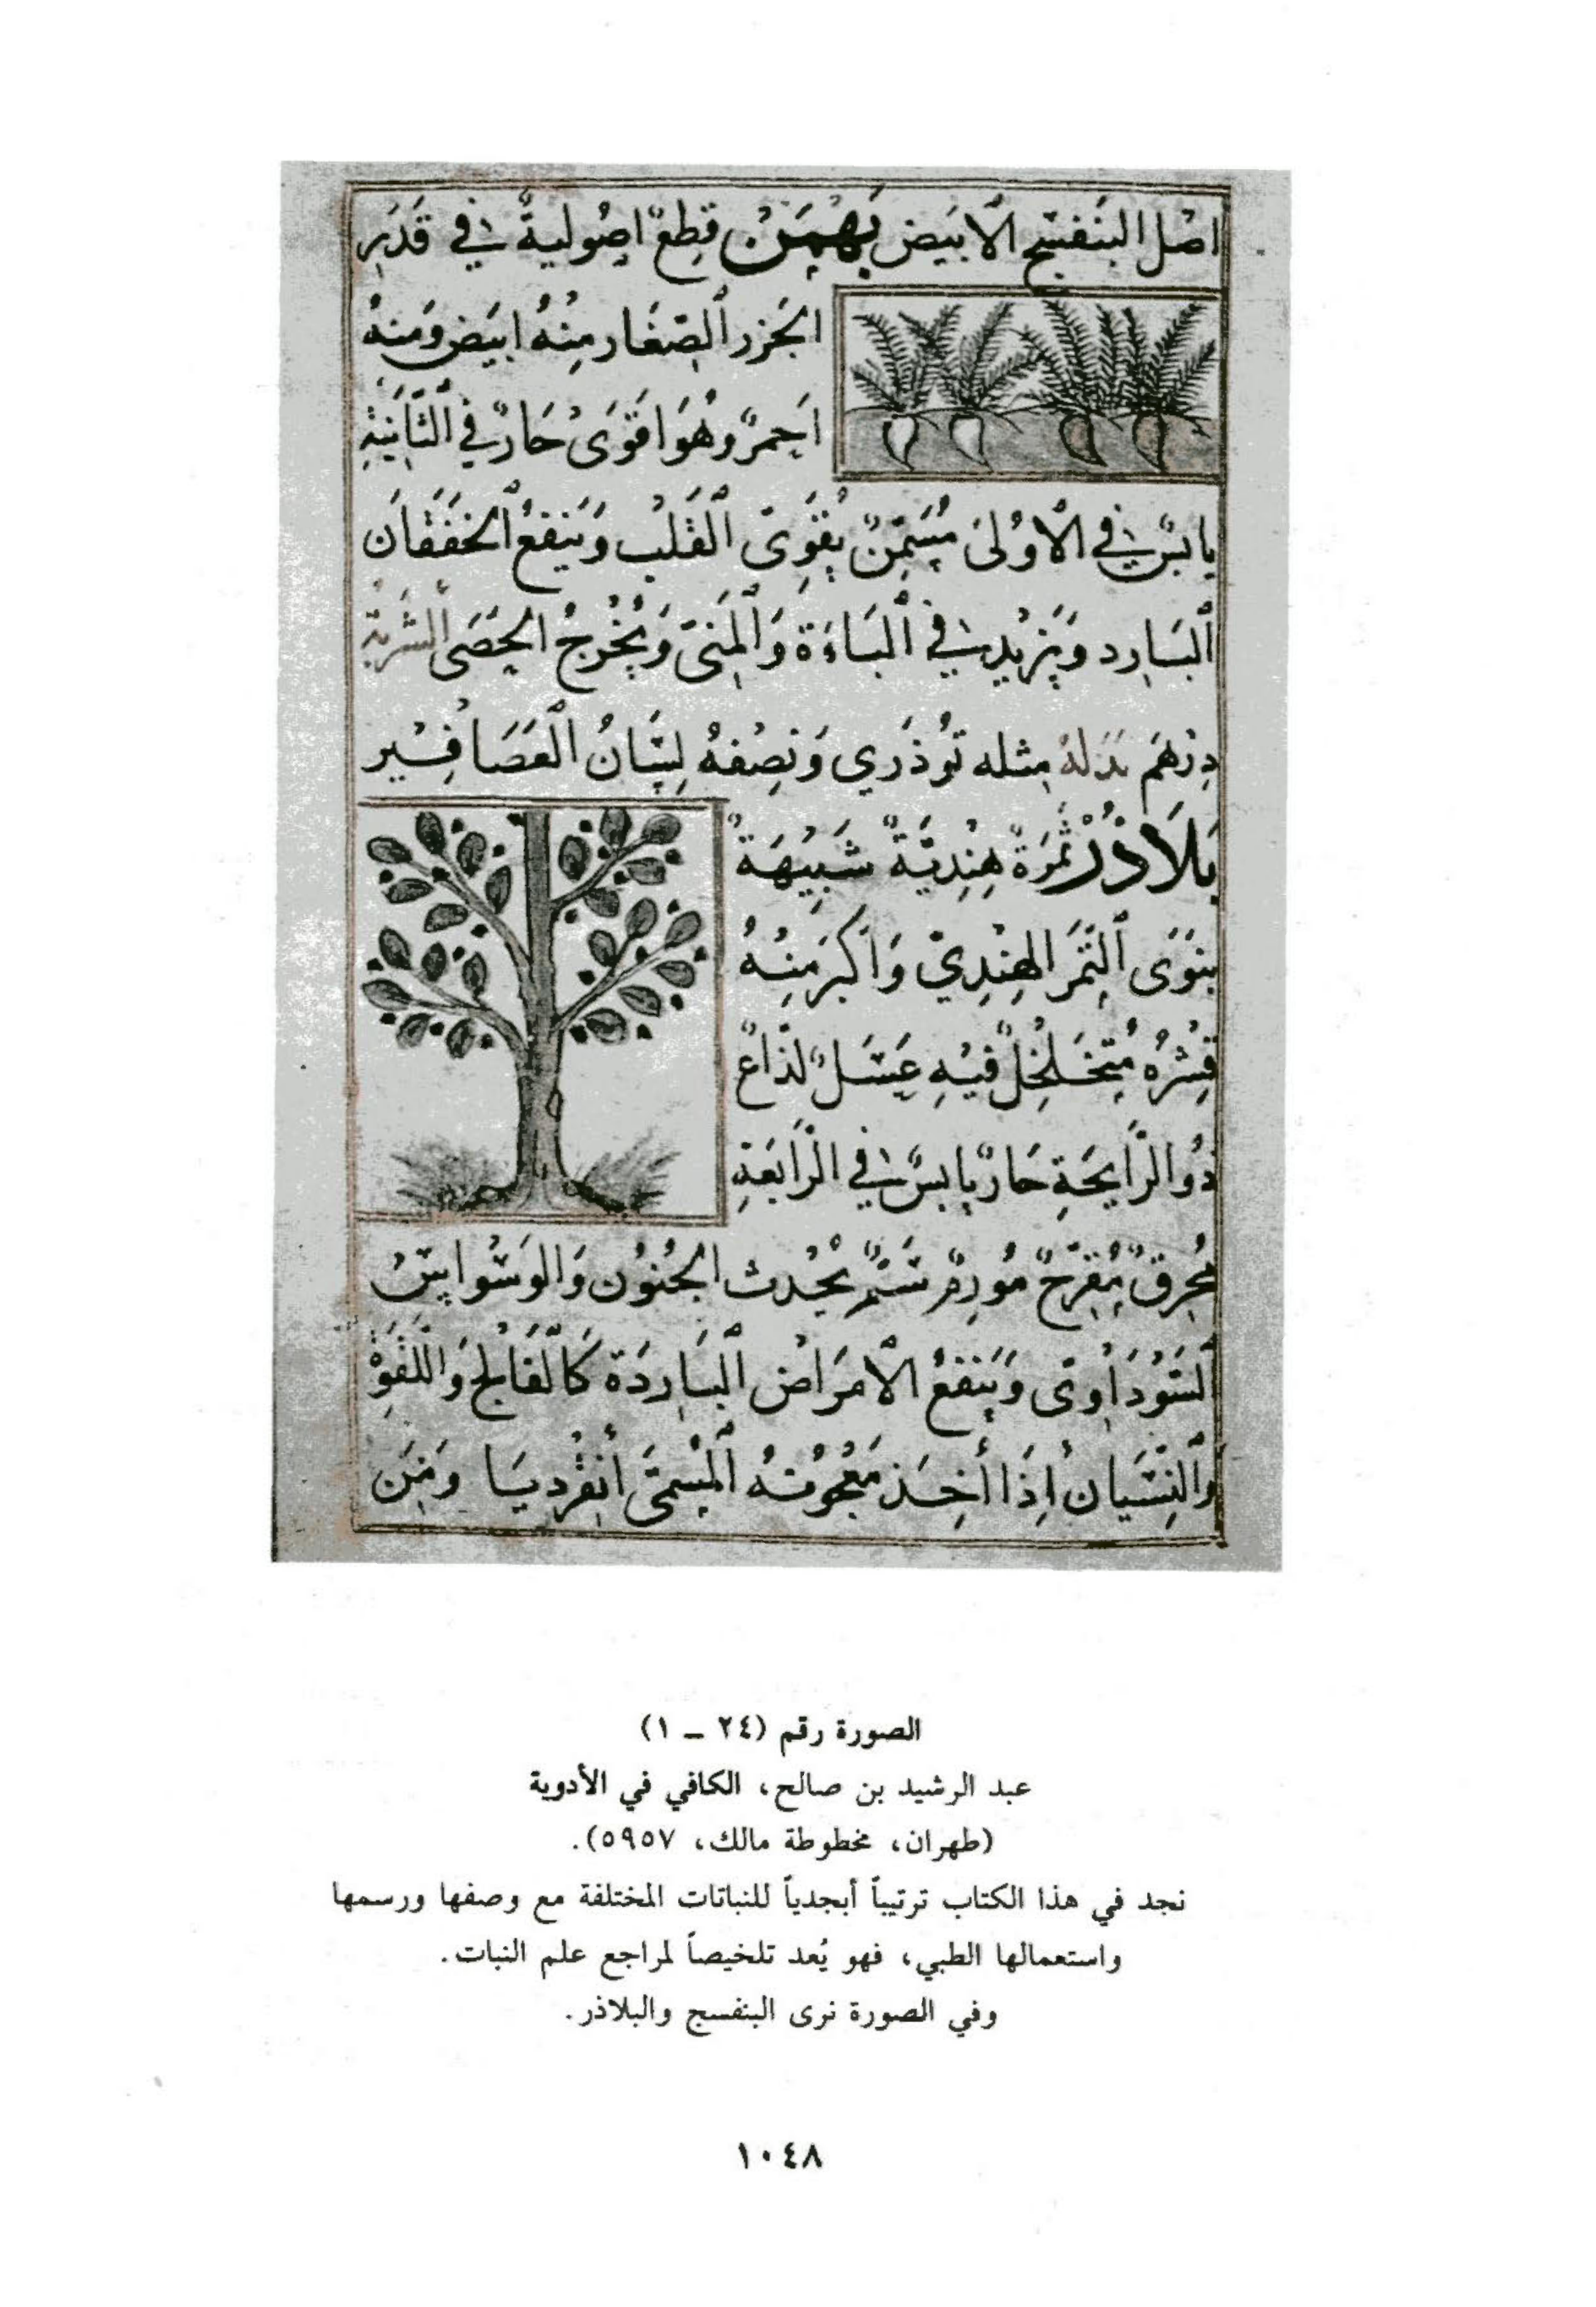 اصْل البَنَفسَج الابَيض بَهْمَنْ قِطعٌ اصُولية في قَدَر
الجَزر الصّغَار مِنْهُ ابيَض وَمنهُ
احَمرٌ وهُوَ اقَوَى حَارٌ في الثَّانِيَةِ
يابسٌ في الاوُلىَ مُسَمّنٌ يُقَوِىّ القَلْب وَيَنفعُ الخفَقَان
البَارِد وَيَزيْد في البَاءَة وَالمِنَىّ وَيُخْرجُ الحَصَى الشربة
دِرْهَم بَدَلهُ مِثله تُوذَري وَنِصْفهُ لِسَانُ العَصَافِيْر
بَلاَذُرْ ثَمَرَةٌ هِنْدِيَّةٌ شَبِيْهَةٌ
بنَوَى التَّمَر الهِنْدِيّ وَاَكبَر مِنْهُ
قِشْرُه مُتَخَلْخِلٌ فِيْهِ عَسَلٌ لذّاعٌ
ذُو الرَّايحَةِ حَارٌ يابسٌ في الرَّابَعَةِ
مُحِرقٌ مُقِرّحٌ مُوَرِمٌ سَمٌّ يُحْدث الجُنُوْن وَالوَسْوَاسْ
السَوْدَاوىّ وَيَنفعُ الاَمرَاض البَارِدَة كاَلفَالِج وَاللَّقوَةْ
وَالنِسْيَان اِذَا أُخِذ مَعْجُونهُ المُسمَّى أنقَرديَا وَمَن
الصورة رقم (٢٤ ــ ١)
عبد الرشيد بن صالح، الكافي في الأدوية
(طهران، مخطوطة مالك، ٥٩٥٧).
نجد في هذا الكتاب ترتيباً أبجدياً للنباتات المختلفة مع وصفها ورسمها
واستعمالها الطبي، فهو يُعد تلخيصاً لمراجع علم النبات.
وفي الصورة نرى البنفسج والبلاذر.
١٠٤٨